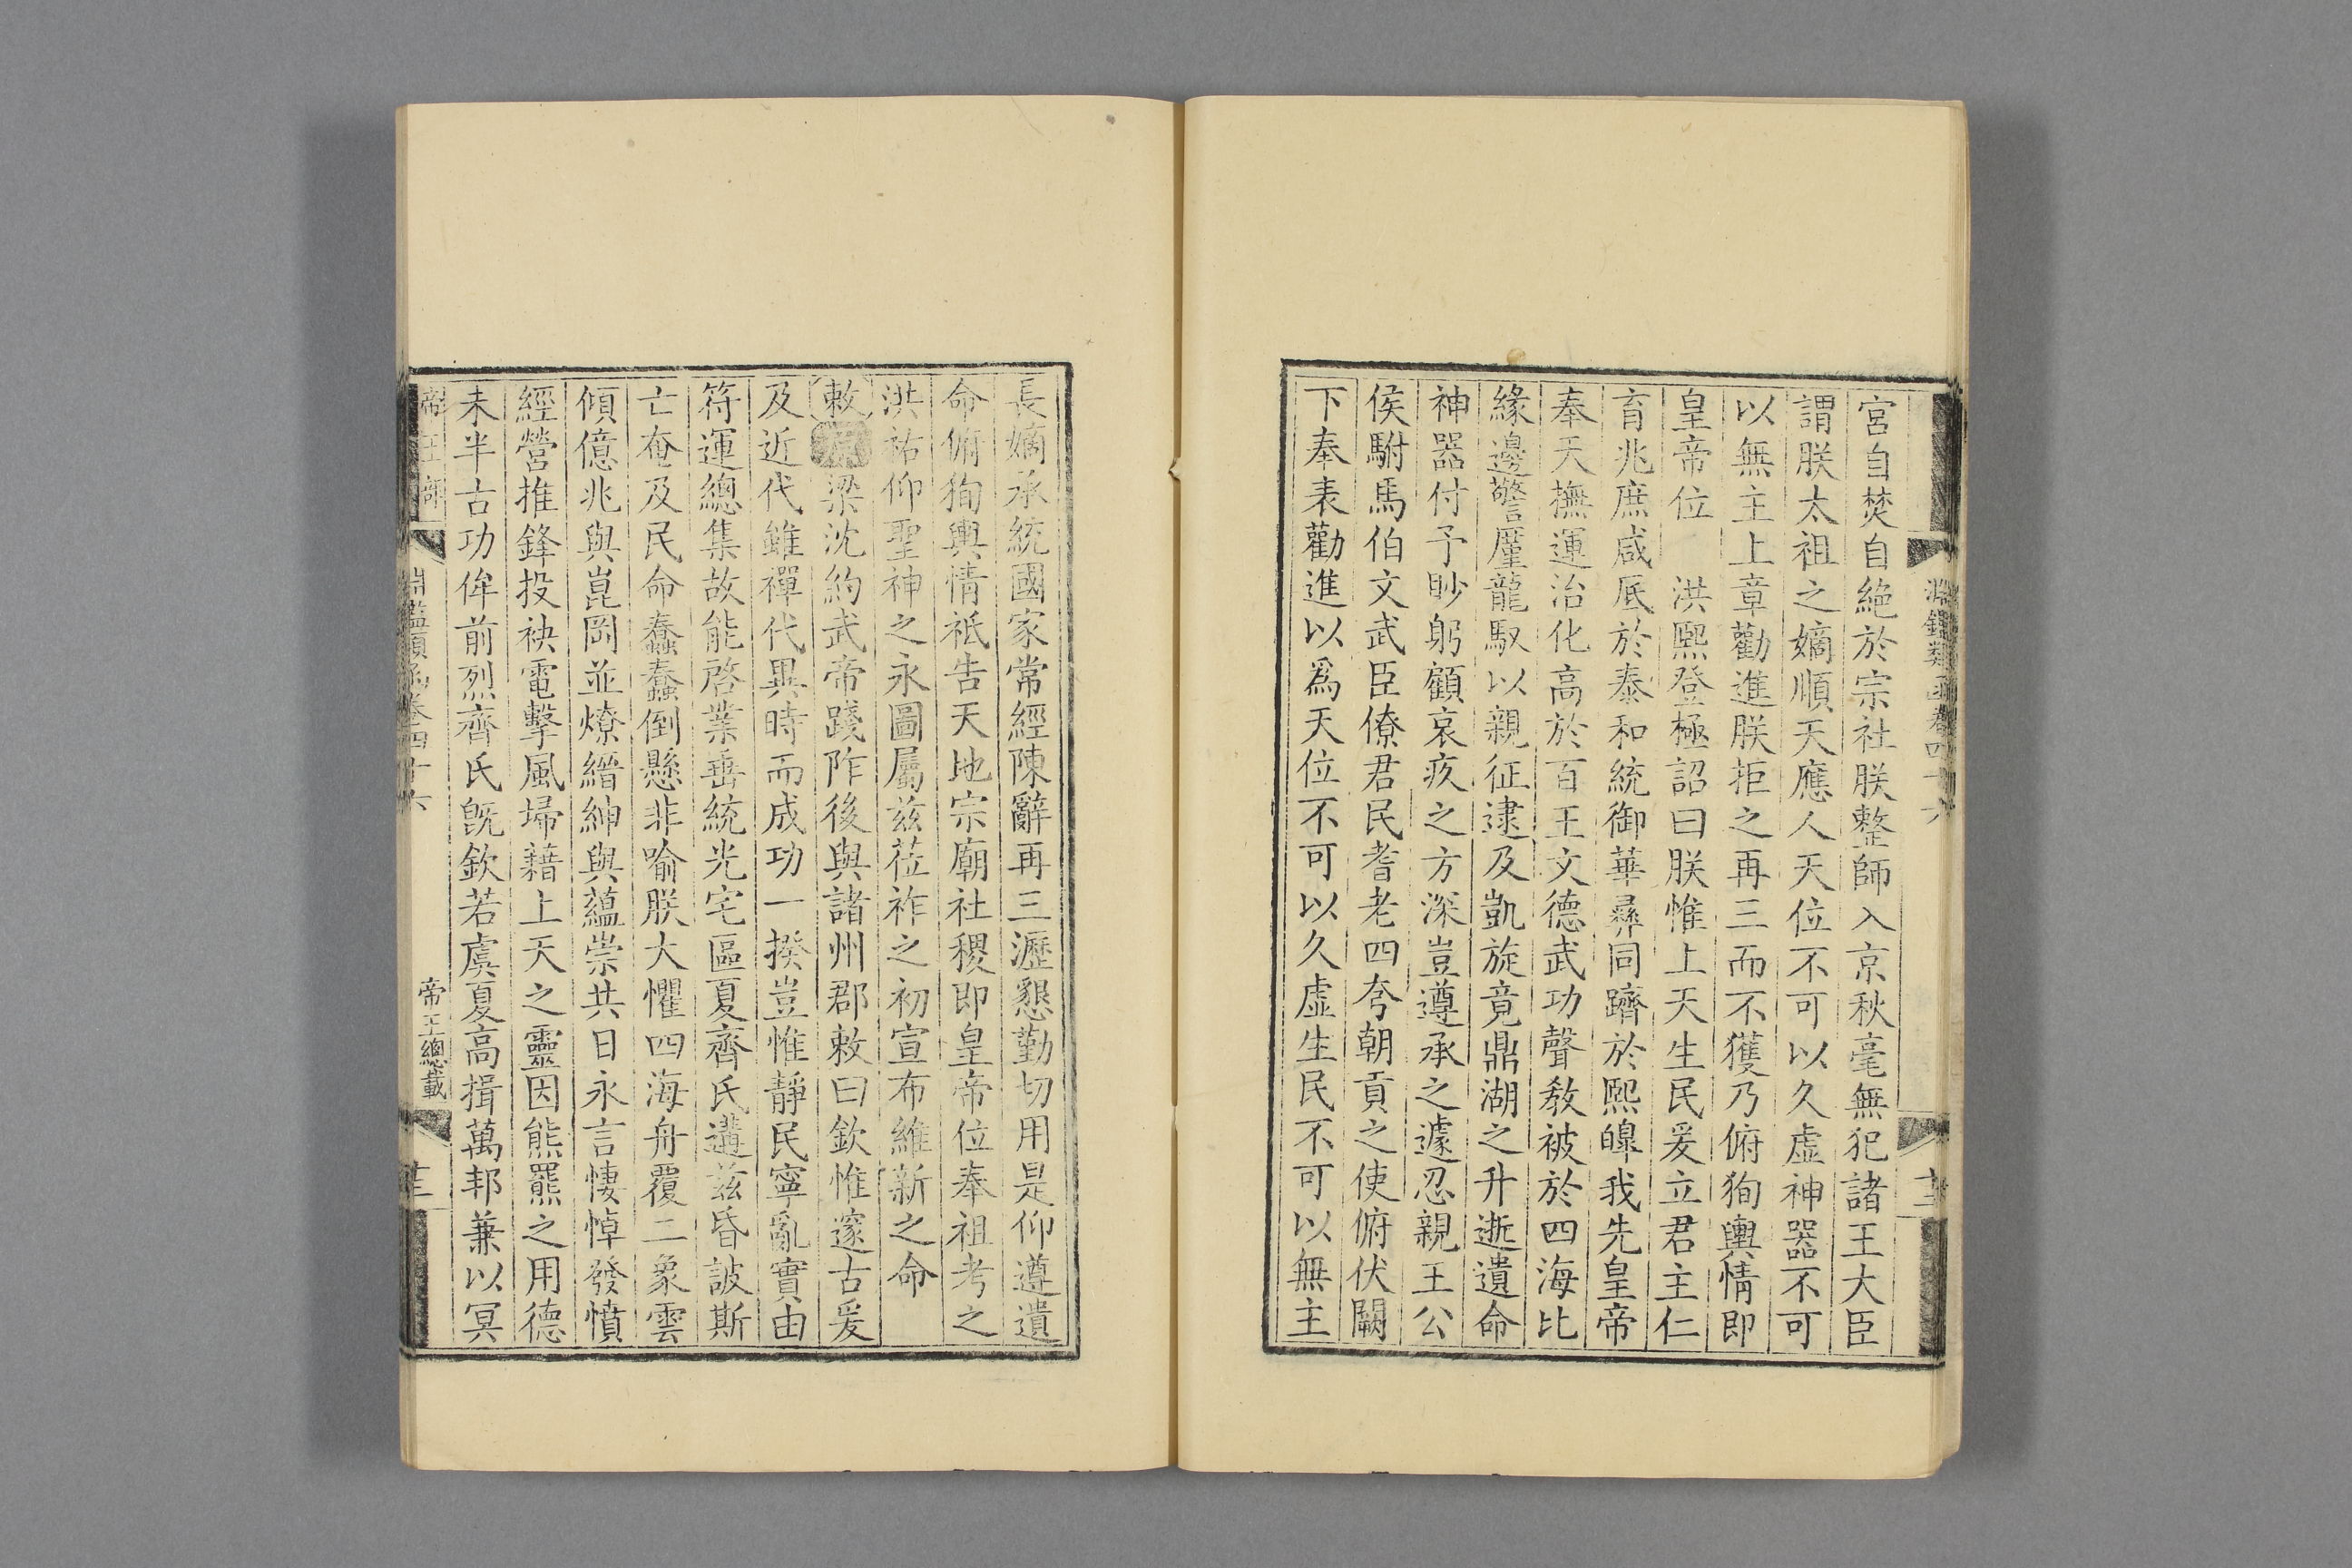 淵鑑類函卷四十六
宮自焚自絶於宗社朕整師入京秋毫無犯諸王大臣
謂朕太祖之嫡順天應人天位不可以久虛神器不可
以無主上章勸進朕拒之再三而不獲乃俯狥輿情即
皇帝位 洪熙登極詔曰朕惟上天生民爰立君主仁
育兆庶咸底於泰和統御華彝同躋於熙皡我先皇帝
奉天撫運治化高於百王文德武功聲敎被於四海比
緣邊警厪龍馭以親征逮及凱旋竟鼎湖之升逝遺命
神器付予眇躬顧哀疚之方深豈遵承之遽忍親王公
侯駙馬伯文武臣僚君民耆老四夸朝貢之使俯伏闕
下奉表勸進以爲天位不可以久虛生民不可以無主
長嫡承統國家常經陳辭再三瀝懇勤切用是仰遵遺
命俯狥輿情祗告天地宗廟社稷即皇帝位奉祖考之
洪祐仰聖神之永圖屬兹莅祚之初宣布維新之命
敕 梁沈約武帝踐阼後與諸州郡敕曰欽惟邃古爰
及近代雖禪代異時而成功一揆豈惟靜民寧亂實由
符運總集故能啓業垂統光宅區夏齊氏遘兹昏詖斯
亡奄及民命蠢蠢倒懸非喻朕大懼四海舟覆二象雲
傾億兆與崑岡並燎縉紳與蘊崇共日永言悽悼發憤
經營推鋒投袂電擊風埽藉上天之靈因熊羆之用德
未半古功侔前烈齊氏旣欽若虞夏高揖萬邦兼以冥
帝王部 淵鑑類函卷四十六 帝王總載